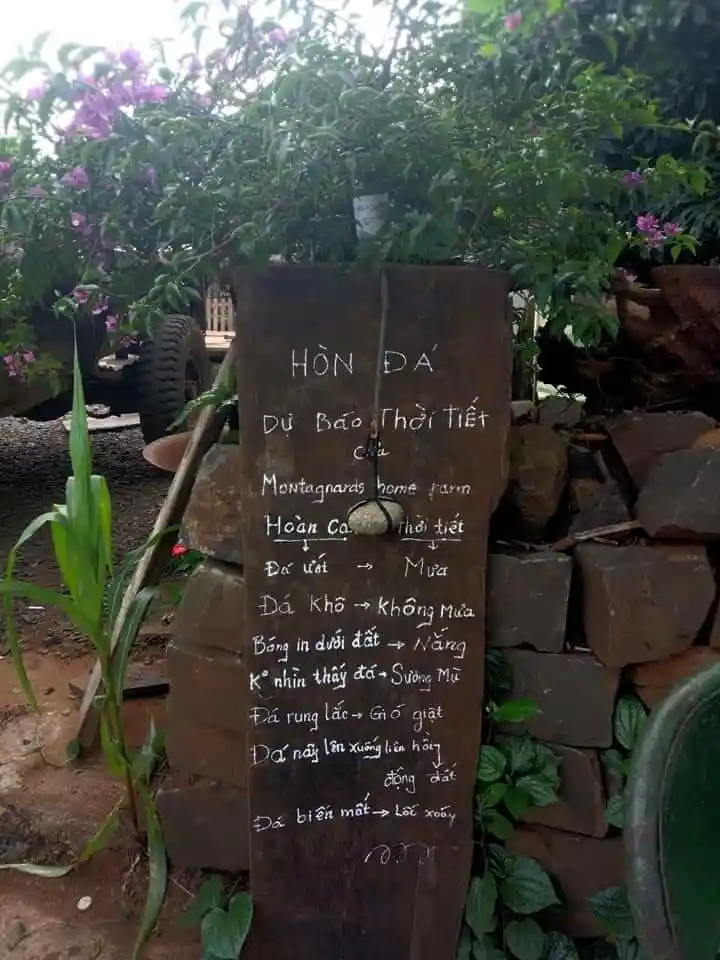 HÒN ĐÁ
Dự Báo Thời Tiết
của
Montagnards home farm
Hoàn Cả Thời tiết
Đá ướt → Mưa
Đá Khô → Không Mưa
Bóng in dưới đất → Nắng
K° nhìn thấy đá → Sương Mù
Đá rung lắc → Gió giật
Đá nảy lên xuống liên hồi
động đất
Đá biến mất → Lốc xoáy